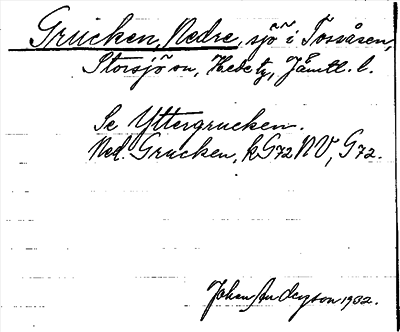 Grucken, Nedre, sjö i Tossåsen,
Storsjö sn, Hede tg, Jämtl. l.
Se Yttergrucken.
Ned. Grucken, k G72 NV, G72.
Johan Anderson 1932.